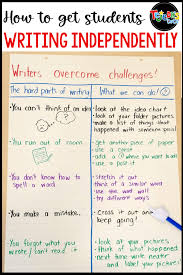 How to get students
WRITING INDEPENDENTLY
Writers overcome challenges!
The hard parts of writing
What we can do!
• You can't think of an idea
• look at the idea chart
• look at your folder pictures
• make a list of things that
happened with someone special
• You run out of room
• get another piece of paper
• use a caret
• add a where you want to add
• use a post it
• You don't know how to
spell a word
• stretch it out
• think of a similar word
• use the word wall
• try different ways
• You make a mistake
• Cross it out and
keep going!
• You forgot what you
wrote / can't read it
• look at your pictures
• think of what
happened
• next time write neater
and label your pictures